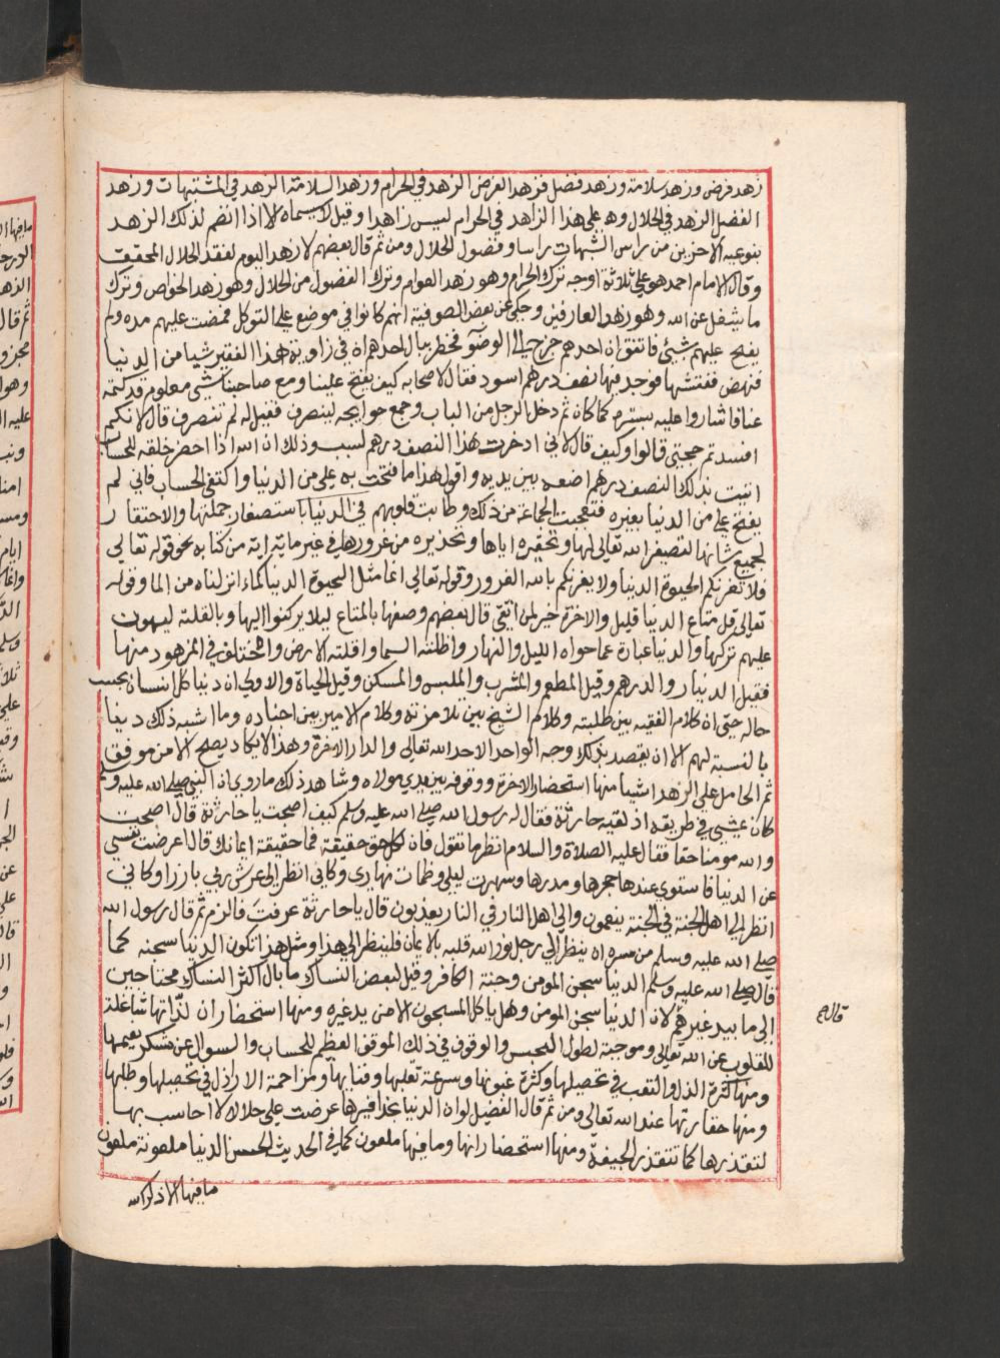 زهد فرض وزهد سلامة وزهد فضل فزهد الفرض الزهد في الحرام وزهد السلامة الزهد في المشتبهات وزهد
الفضل الزهد في الحلال وهو علي هذا الزاهد في الحرام ليس زاهدا وقيل لا يسماه الا اذا انضم لذلك الزهد
بنوعيه الاخرين من راس الشبهات راسا وفضول الحلال ومن ثم قال بعضهم لا زهد اليوم لفقد الحلال المحقق
وقال الامام احمد هو علي ثلاثة اوجه ترك الحرام وهو زهد العوام وترك الفضول من الحلال وهو زهد الخواص وترك
ما شغل عن الله وهو زهد العارفين وحكي عن بعض الصوفية انهم كانوا في موضع علي التوكل فمضت عليهم مده ولم
يفتح عليهم بشيئي فاتفق ان احدهم خرج الي الوضوء فخطر ببال احدهم ان في زاوية هذا الفقير شيا من الدنيا
فنهض ففتشها فوجد فيها نصف درهم اسود فقال لاصحابه كيف يفتح علينا ومع صاحبنا شيئ معلوم قد كتمه
عنا فاشاروا عليه بستره كما كان ثم دخل الرجل من الباب وجمع حوايجه لينصرف فقيل له لم تنصرف قال لانكم
افسدتم حجتي قالوا وكيف قال لاني ادخرت هذا النصف درهم لسبب وذلك ان الله اذا احضر خلقه للحساب
اتيت بذلك النصف درهم اضعه بين يديه واقول هذا ما فتحت به علي من الدنيا واكتفي الحساب فاني لم
يفتح علي من الدنيا بغيره فتعجبت الجماعة من ذلك وطابت قلوبهم في الدنيا باستصغار جملتها والاحتقار
لجميع شانها لتصغير الله تعالي لها وتحقيره اياها وتحذيره من غرورها في غير ماية اية من كتابه نحو قوله تعالي
فلا تغرنكم الحيوة الدنيا ولا يغرنكم بالله الغرور وقوله تعالي انما مثل الحيوة الدنيا كماء انزلناه من الما وقوله
تعالي قل متاع الدنيا قليل والاخرة خير لمن اتقي قال بعضهم وصفها بالمتاع ليلا يركنوا اليها وبالقلته ليهون
عليهم تركها والدنيا عبارة عما حواه الليل والنهار واظلته السما واقلته الارض واختلف في المزهود منها
فقيل الدنيار والدرهم وقيل المطعم والمشرب والملبس والمسكن وقيل الحياة والاولي ان دنيا كل انسان بحسب
حاله حتي ان كلام الفقيه بين طلبته وكلام الشيخ بين تلامزته وكلام الامير بين اجناده وما اشبه ذلك دينا
بالنسبة لهم الا ان يقصد بذلك وجه الواحد الاحد الله تعالي والدار الاخرة وهذا لا يكاد يصلح الا من موفق
ثم الحامل علي الزهد اشيا منها استحضار الاخرة ووقوفه بين يدي مولاه وشاهد ذلك ما روي ان النبي صلي الله عليه وسلم
كان يمشي في طريقه اذ لقيه حارثة فقال له رسول الله صلي الله عليه وسلم كيف اصبحت يا حارثة قال اصبحت
والله مومنا حقا فقال عليه الصلاة والسلام انظر ما تقول فان لكل حق حقيقة فما حقيقة ايمانك قال اعرضت نفسي
عن الدنيا فاستوي عندها حجرها ومدرها وسهرت ليلي وظمات نهاري وكاني انظر الي عرش ربي بارزا وكاني
انظر الي اهل الجنة في الجنة ينعمون والي اهل النار في النار يعذبون قال يا حارثة عرفت فالزم ثم قال رسول الله
صلي الله عليه وسلم من سره ان ينظر الي رجل نور الله قلبه بالايمان فلينظر الي هذا ومثل هذا تكون الدنيا سجنه كما
قال صلي الله عليه وسلم الدنيا سجن المومن وجنة الكافر وقيل لبعض النساك ما بال اكثر النساك محتاجين
الي ما بيد غيرهم لان الدنيا سجن المومن وهل ياكل المسجون الا من يد غيره ومنها استحضار ان لذاتها شاغلة
قال ع
للقلوب عن الله تعالي وموجبة لطول الحبس والوقوف في ذلك الموقف العظيم للحساب والسوال عن شكر نعيمها
ومنها كثرة الذل والتعب في تحصيلها وكثرة غبونها وسرعة تقلبها وفنايها ومزاحمة الاراذل في تحصيلها وطلبها
ومنها حقارتها عند الله تعالي ومن ثم قال الفضيل لو ان الدنيا بحذافيرها عرضت علي حلالا لا احاسب بها
لتقذرها كما تتقذر الجيفة ومنها استحضار انها وما فيها ملعون كما في الحديث الحسن الدنيا ملعونة ملعون
ما فيها الا ذكر الله